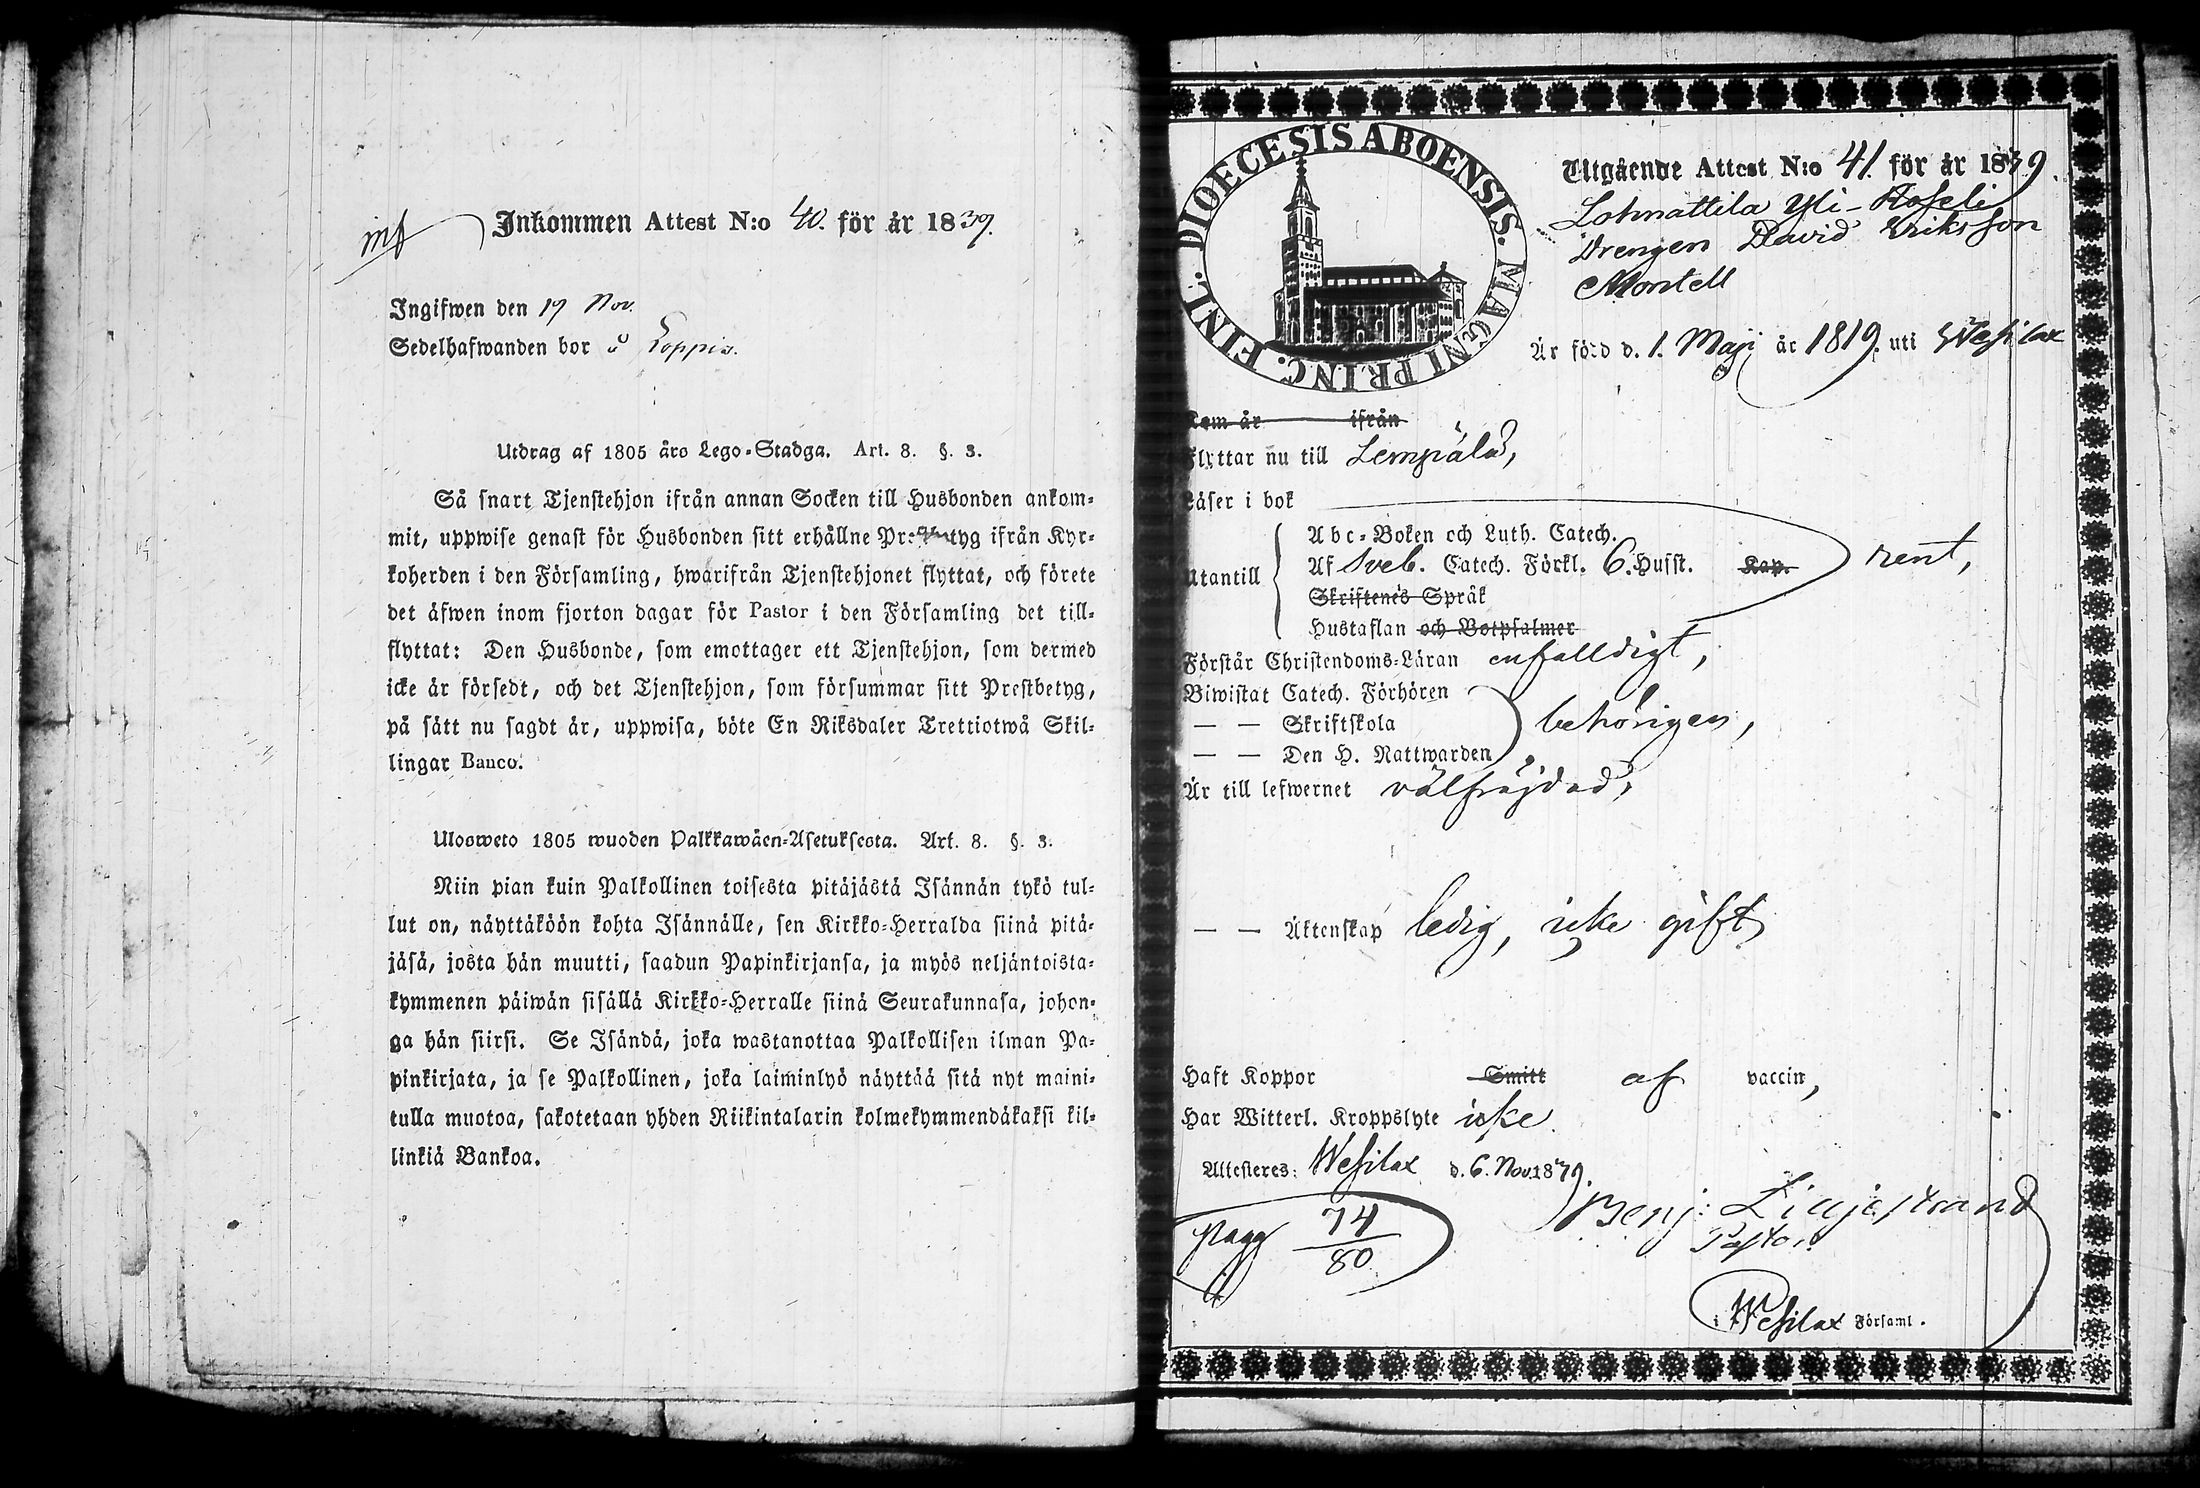 Inkommen Attest N:o 40. för år 1839.
Ingifwen den 19 Nov.
Sedelhafwanden bor å Loppis.
Utdrag af 1805 års Lego-Stadga. Art. 8. §. 3.
Så snart Tjenstehjon ifrån annan Socken till Husbonden ankom-
mit, uppwise genast för Husbonden sitt erhållne Prestbetyg ifrån Kyr-
koherden i den Församling, hwarifrån Tjenstehjonet flyttat, och förete
det äfwen inom fjorton dagar för Pastor i den Församling det till-
flyttat: Den Husbonde, som emottager ett Tjenstehjon, som dermed
icke är försedt, och det Tjenstehjon, som försummar sitt Prestbetyg,
på sätt nu sagdt är, uppwisa, böte En Riksdaler Trettiotwå Skil-
lingar Banco.
Ulosweto 1805 wuoden Palkkawäen-Asetuksesta. Art. 8. §. 3.
Niin pian kuin Palkollinen toisesta pitäjästä Isännän tykö tul-
lut on, näyttäköön kohta Isännälle, sen Kirkko-Herralda siinä pitä-
jäsä, josta hän muutti, saadun Papinkirjansa, ja myös neljäntoista-
kymmenen päiwän sisällä Kirkko-Herralle siinä Seurakunnasa, johon-
ga hän siirsi. Se Isändä, joka wastanottaa Palkollisen ilman Pa-
pinkirjata, ja se Palkollinen, joka laiminlyö näyttää sitä nyt maini-
tulla muotoa, sakotetaan yhden Riikintalarin kolmekymmendäkaksi kil-
linkiä Bankoa.
DIOECESIS ABOENSIS. MAGNI PRINC. FINL.
Utgående Attest N:o 41 för år 1839.
Lohnattila Yli-Koseli
Drengen David Eriksson
Montell
Är född d. 1. Maji år 1819. uti Wesilax
Kom år ifrån
Flyttar nu till Lempälä,
Läser i bok
Utantill
Abc-Boken och Luth. Catech.
Af Sveb. Catech. Förkl. 6. Hufst. Kap.
rent,
Skriftenes Språk
Hustaflan och Botpsalmer
Förstår Christendoms-Läran enfalldigt,
Biwistat Catech. Förhören
— — Skriftskola behörigen,
— — Den H. Nattwarden
Är till lefwernet välfräjdad,
— — Äktenskap ledig, icke gift
Haft Koppor Smitt af vaccin,
Har Witterl. Kroppslyte icke.
Attesteres: Wesilax d. 6. Nov. 1839.
Benj: Liljestrand
Pastor
Pagg 74
80
i Wesilax Församl.